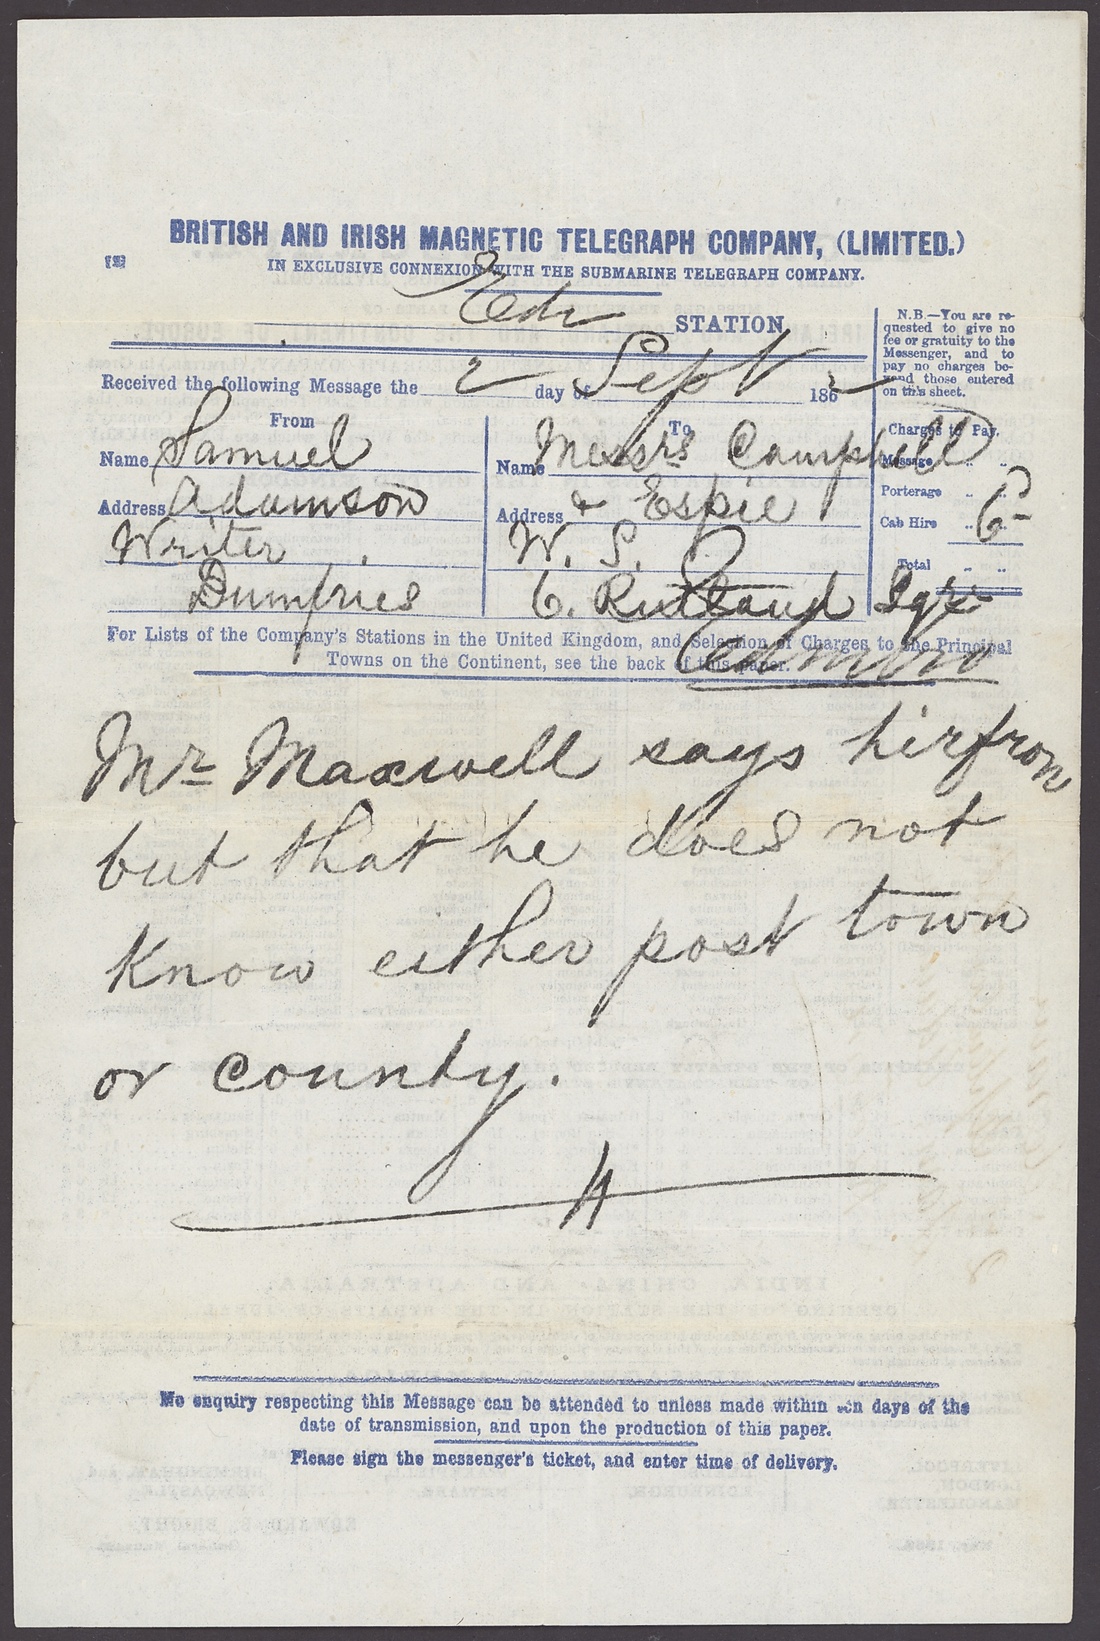 BRITISH AND IRISH MAGNETIC TELEGRAPH COMPANY, (LIMITED.)
IN EXCLUSIVE CONNEXION WITH THE SUBMARINE TELEGRAPH COMPANY.
Edr STATION
N.B.—You are re-
quested to give no
fee or gratuity to the
Messenger, and to
pay no charges be-
yond those entered
on this sheet.
Received the following Message the 2 day of Sept 1862
From
Name Samuel
Address Adamson
Writer
Dumfries
To
Name Messrs Campbell
Address & Espie
W. S.
6. Rutland Sqre
Edinbro
Charges to Pay.
Message
Porterage
Cab Hire 6D
Total
For Lists of the Company's Stations in the United Kingdom, and Selection of Charges to the Principal
Towns on the Continent, see the back of this paper.
Mr Maxwell says hirfron
but that he does not
know either post town
or county.
No enquiry respecting this Message can be attended to unless made within ten days of the
date of transmission, and upon the production of this paper.
Please sign the messenger's ticket, and enter time of delivery.